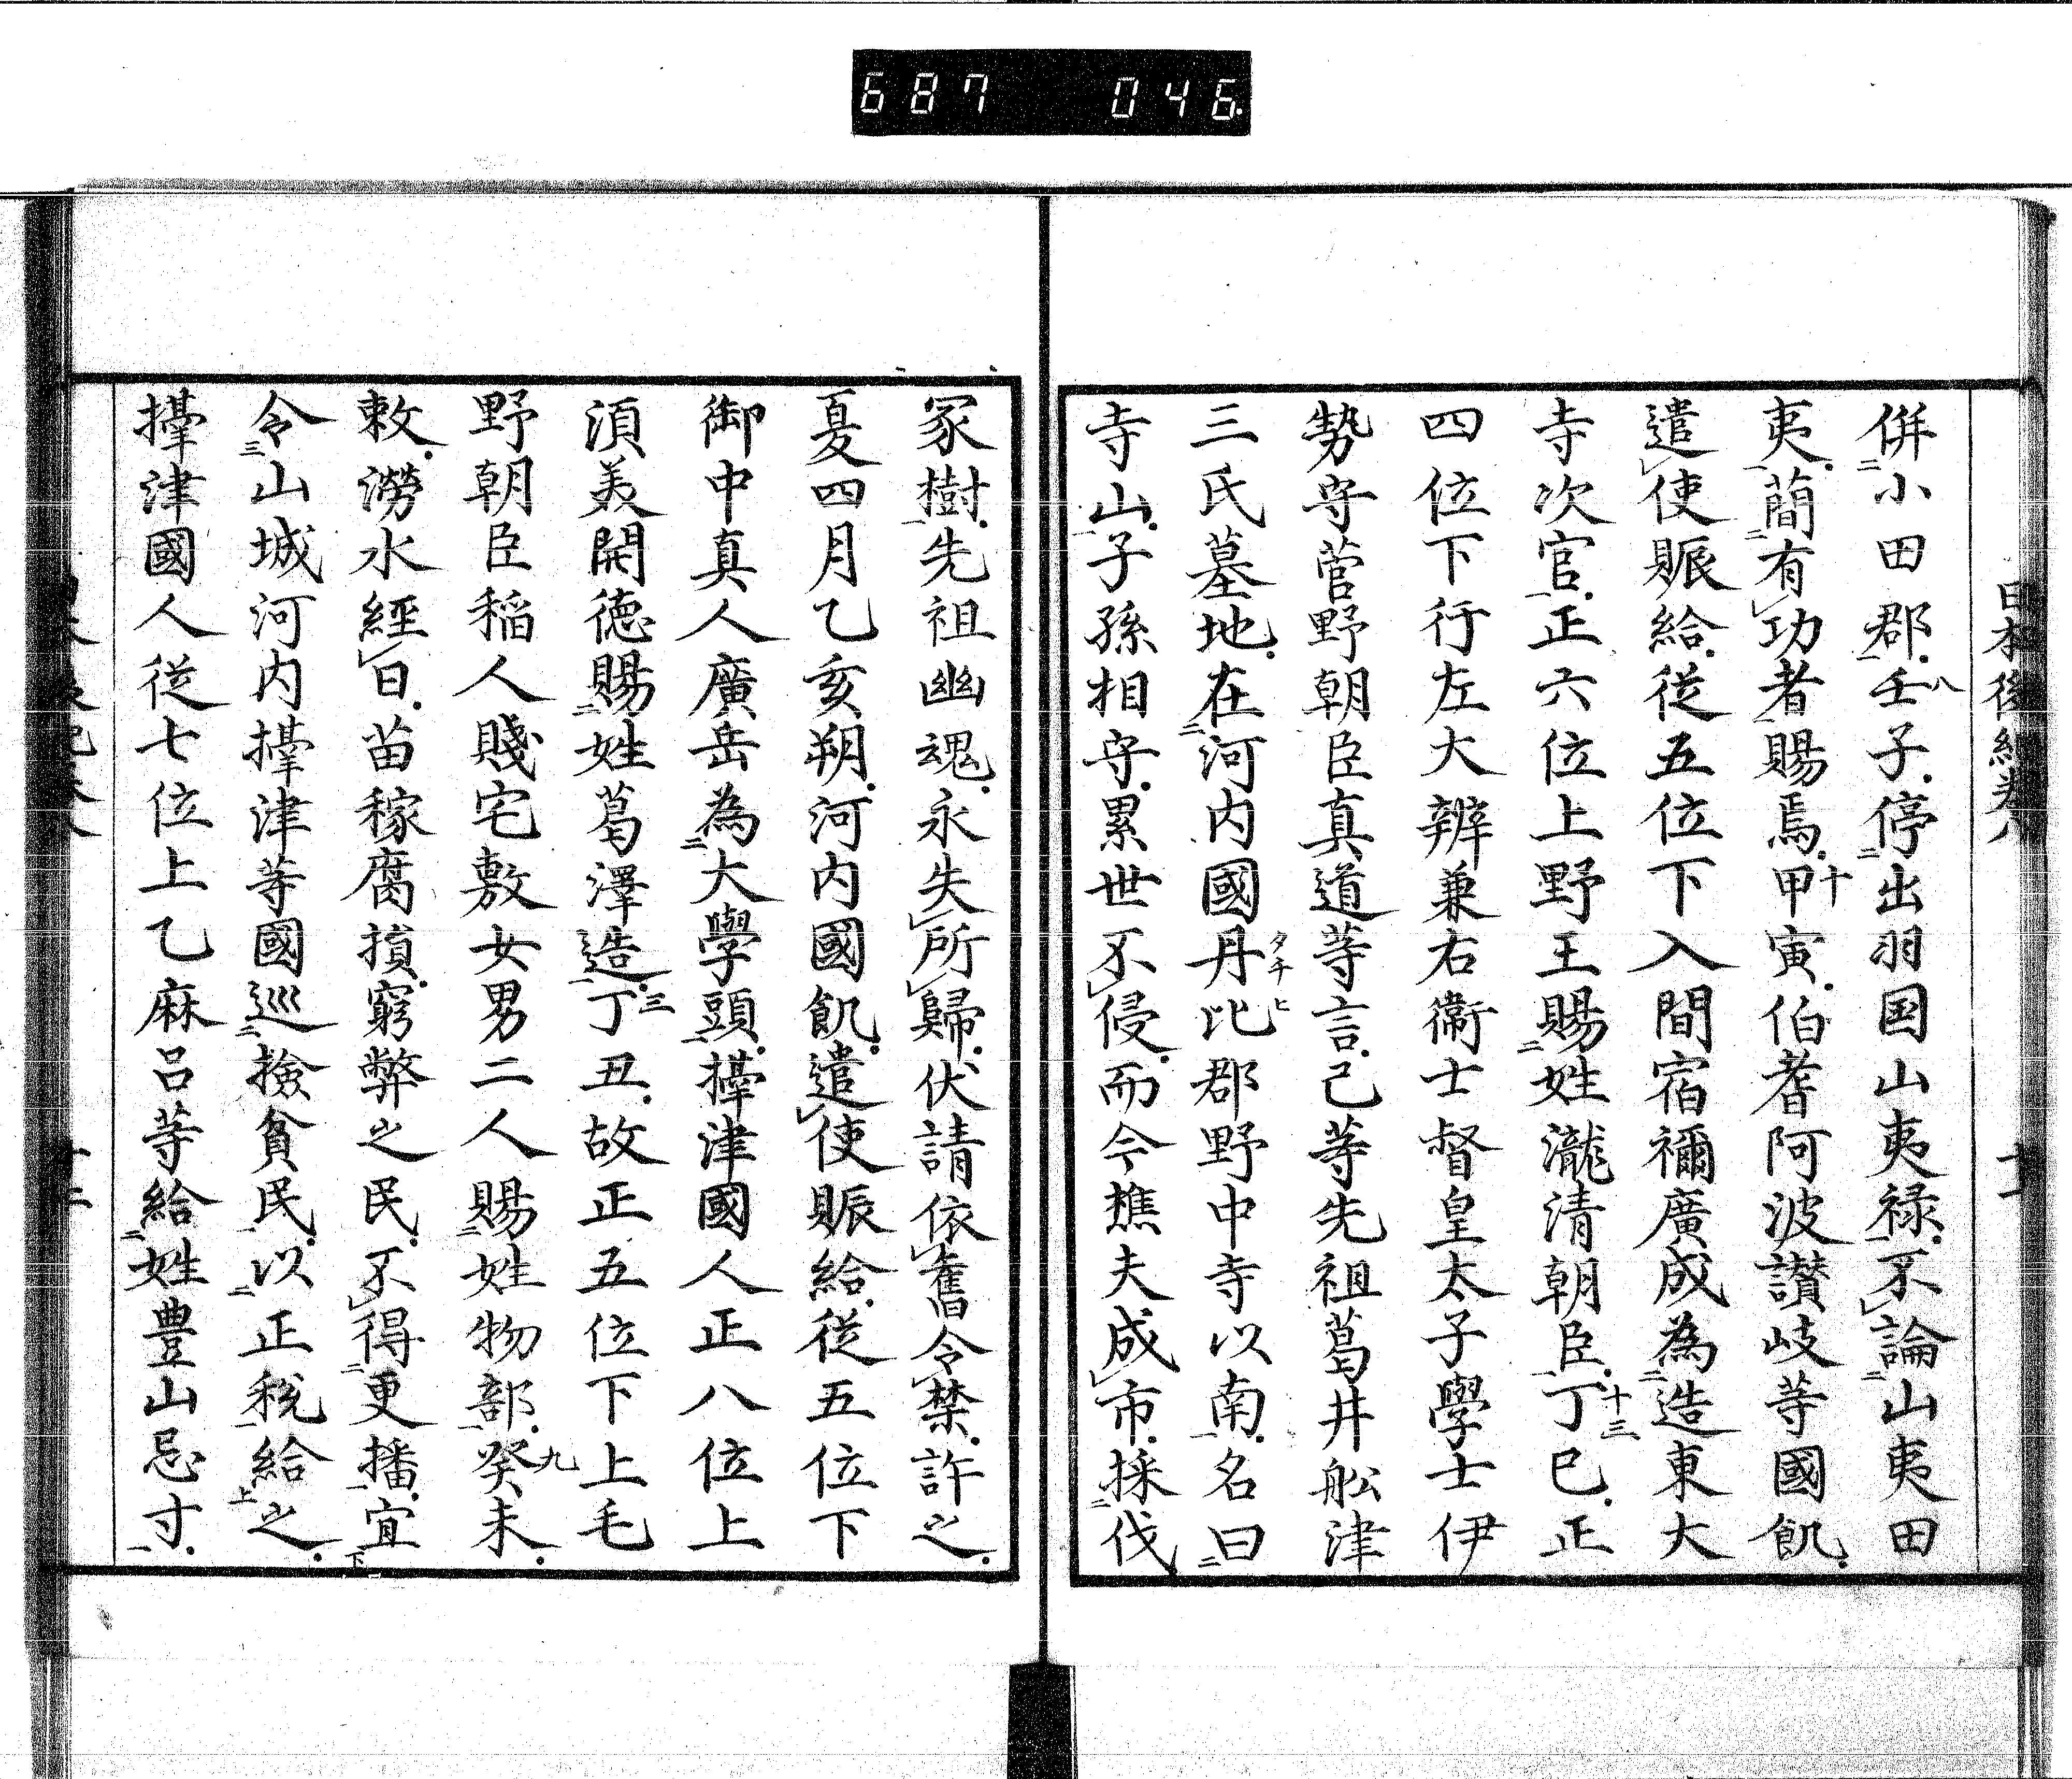 687 046
日本後紀巻八 十一
併小田郡壬子停出羽国山夷禄不論山夷田
夷蕳有功者賜焉甲寅伯耆阿波讃岐等國飢
遣使賑給従五位下入間宿禰廣成為造東大
寺次官正六位上野王賜姓瀧清朝臣丁巳正
四位下行左大辨兼右衛士督皇太子學士伊
勢守菅野朝臣真道等言己等先祖葛井舩津
三氏墓地在河内國丹比郡野中寺以南名曰
寺山子孫相守累世不侵而今樵夫成市採伐
冢樹先祖幽魂永失所歸伏請依舊令禁許之
夏四月乙亥朔河内國飢遣使賑給従五位下
御中真人廣岳為大學頭攝津國人正八位上
湏美開徳賜姓葛澤造丁丑故正五位下上毛
野朝臣稲人賤宅敷女男二人賜姓物部癸未
敕澇水經日苗稼腐損窮弊之民不得更播宜
令山城河内攝津等國巡撿貧民以正税給之
攝津國人従七位上乙麻呂等給姓豊山忌寸